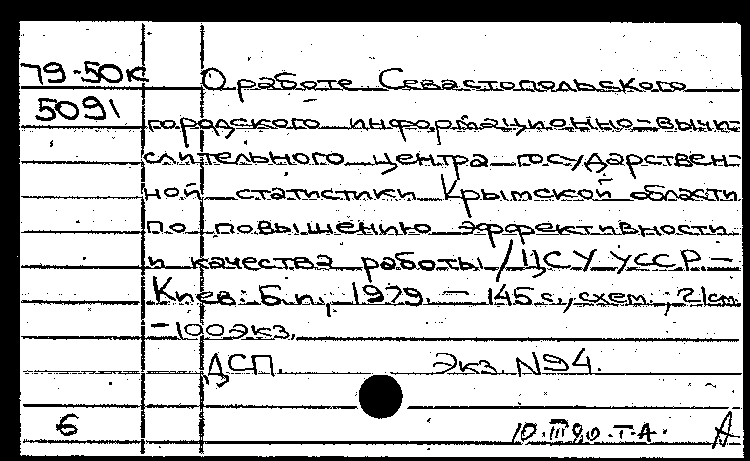 79-50К О работе Севастопольского
5091 городского информационно-вычи-
слительного центра государствен-
ной статистики Крымской области
по повышению эффективности
и качества работы / ЦСУ УССР. –
Киев: Б.и., 1979. – 145 с., схем.; 21 см.
– 100 экз.
ДСП. Экз. №94.
6 10.III 80. Т.А. А